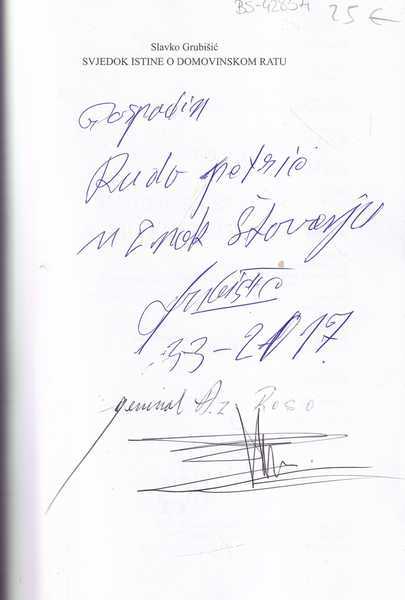 BS-4285A 25 €
Slavko Grubišić
SVJEDOK ISTINE O DOMOVINSKOM RATU
Gospodin
Rudo petrić
u znak štovanju
Grubišić
general A.Z Roso